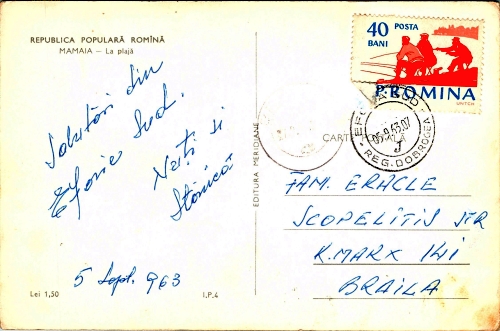 REPUBLICA POPULARĂ ROMÎNĂ
MAMAIA – La plajă
Salutări din
Eforie Sud.
Neți și
Stănică
5 Sept. 963
Lei 1,50
I.P.4
EDITURA MERIDIANE
CARTE POȘTALĂ
40 POSTA
BANI
R.P.ROMINA
05.9.63.07
REG. DOBROGEA
FAM. ERACLE
SCOPELITIS STR
K. MARX 141
BRAILA